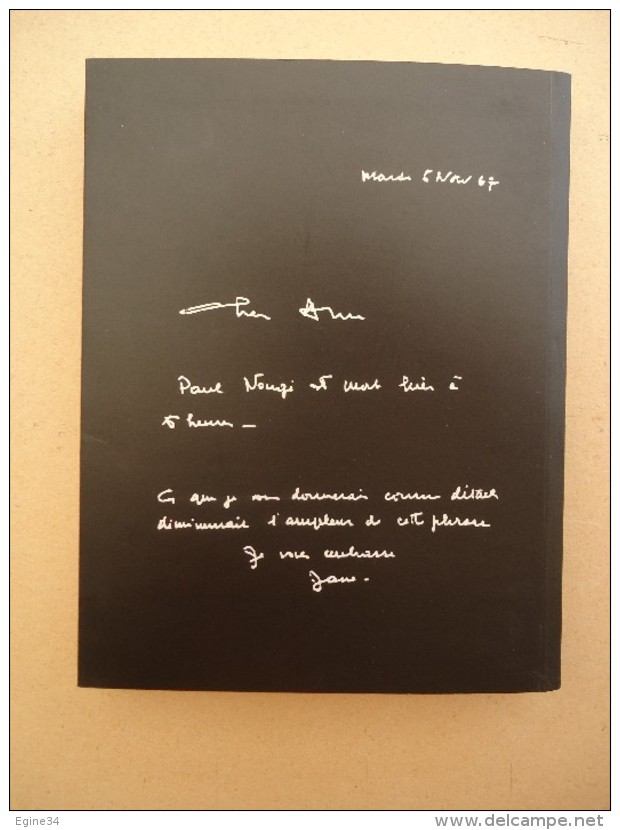 Mardi 5 Nov 67
Cher Ami
Paul Nougé est mort hier à
5 heures —
Ce que je vous donnerais comme détail
diminuerait l'ampleur de cette phrase
Je vous embrasse
Jane.
Egine34
www.delcampe.net